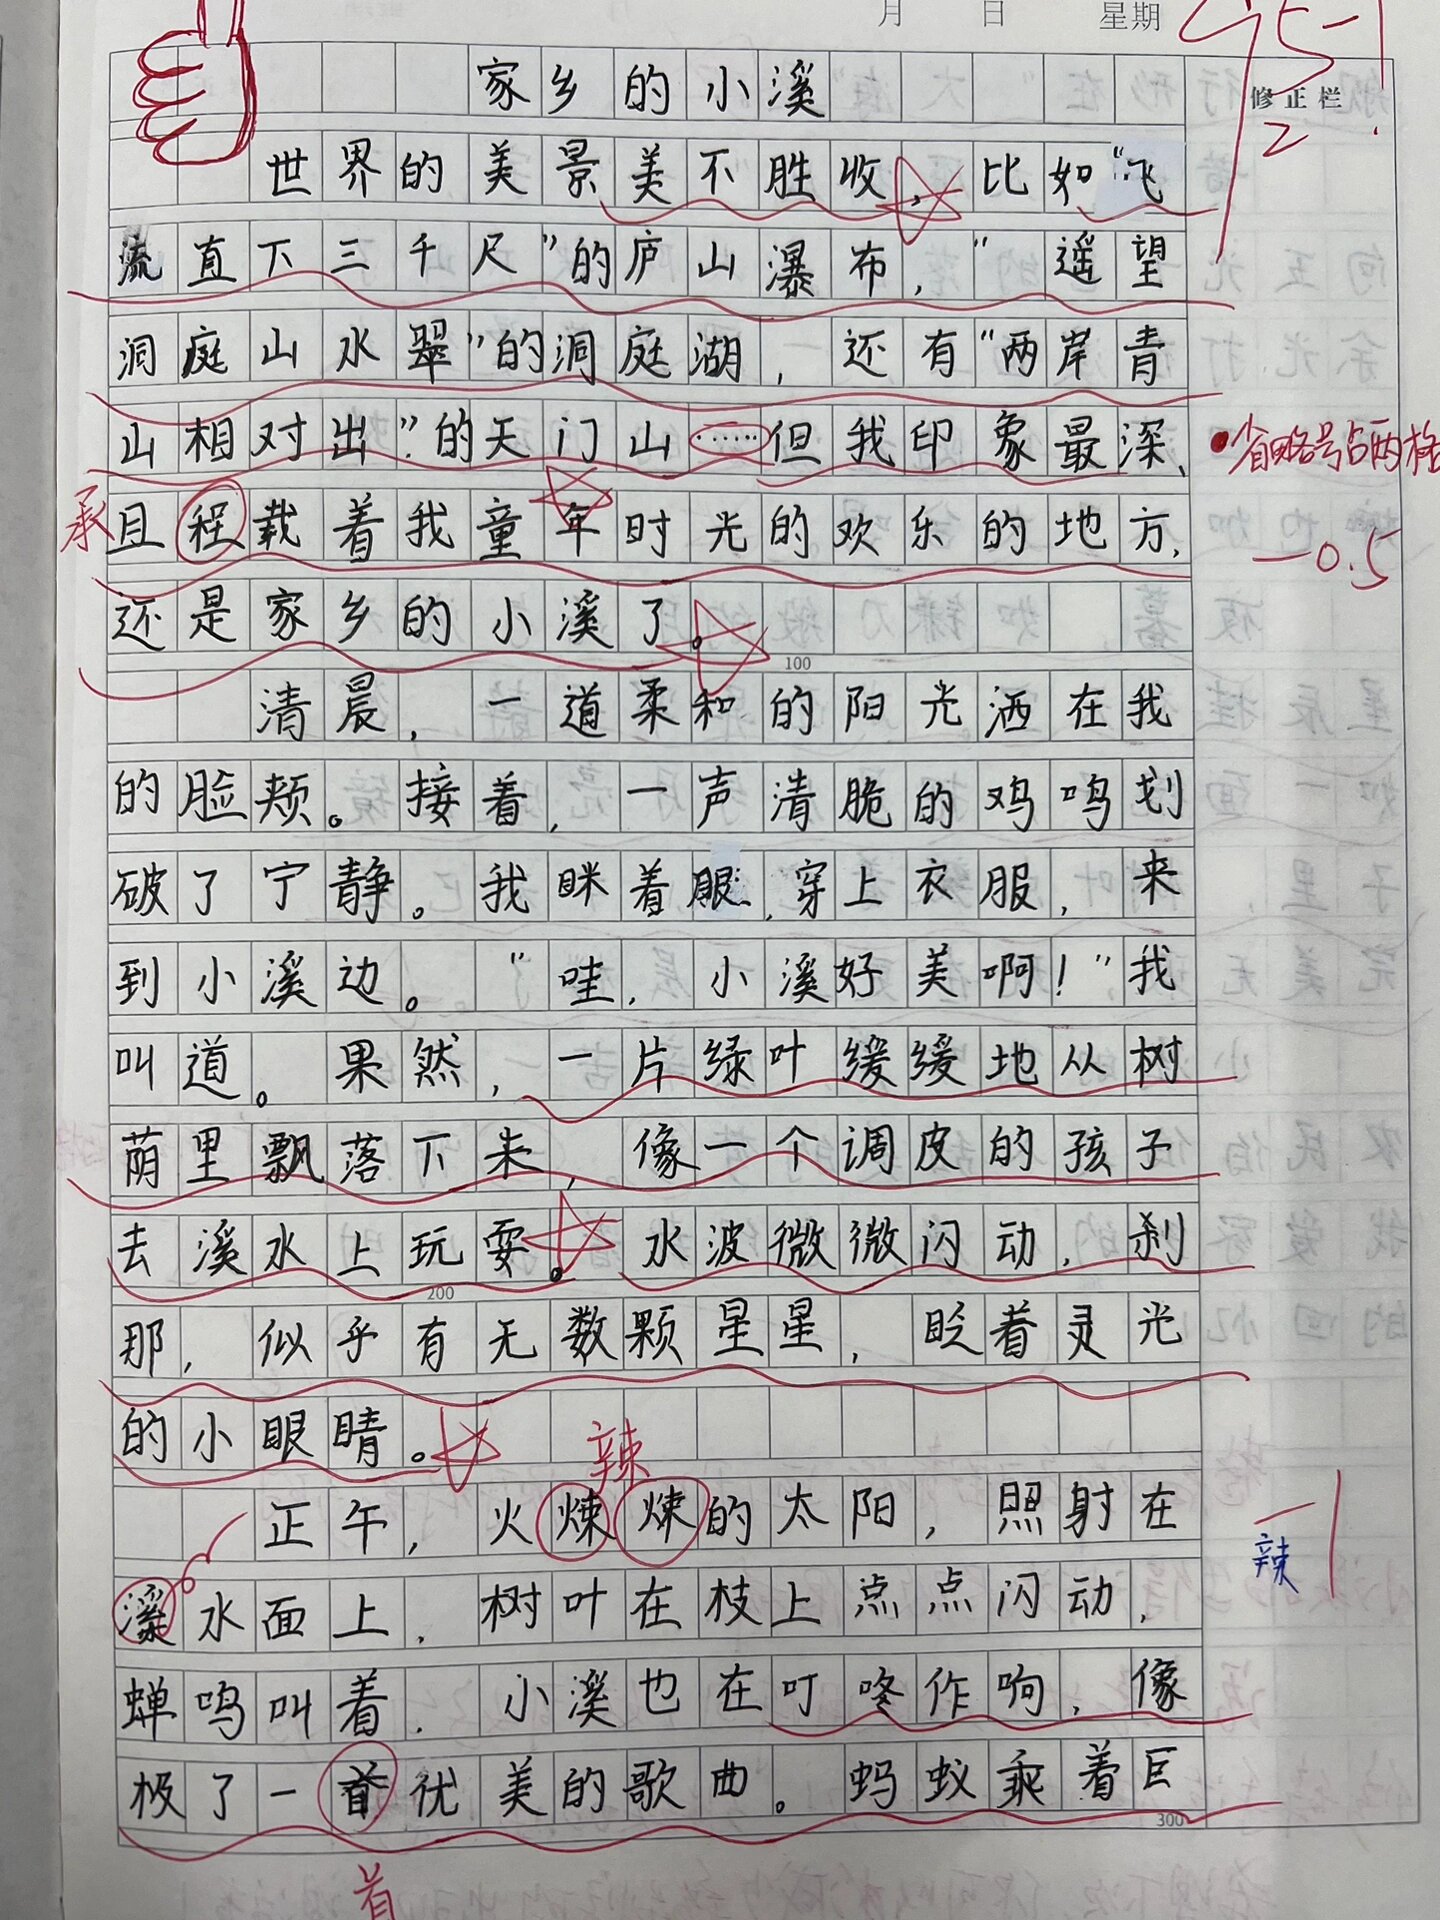 月 日 星期
修正栏
家乡的小溪
世界的美景美不胜收，比如“飞
流直下三千尺”的庐山瀑布，“遥望
洞庭山水翠”的洞庭湖，还有“两岸青
山相对出”的天门山……但我印象最深、
省略号占两格
承
且程载着我童年时光的欢乐的地方，
-0.5
还是家乡的小溪了。
100
清晨，一道柔和的阳光洒在我
的脸颊。接着，一声清脆的鸡鸣划
破了宁静。我眯着眼，穿上衣服，来
到小溪边。“哇，小溪好美啊！”我
叫道。果然，一片绿叶缓缓地从树
荫里飘落下来，像一个调皮的孩子
去溪水上玩耍。水波微微闪动，刹
200
那，似乎有无数颗星星，眨着灵光
的小眼睛。
辣
正午，火煉煉的太阳，照射在
-1
辣
溪水面上，树叶在枝上点点闪动，
蝉鸣叫着，小溪也在叮咚作响，像
极了一首优美的歌曲。蚂蚁乘着巨
300
首